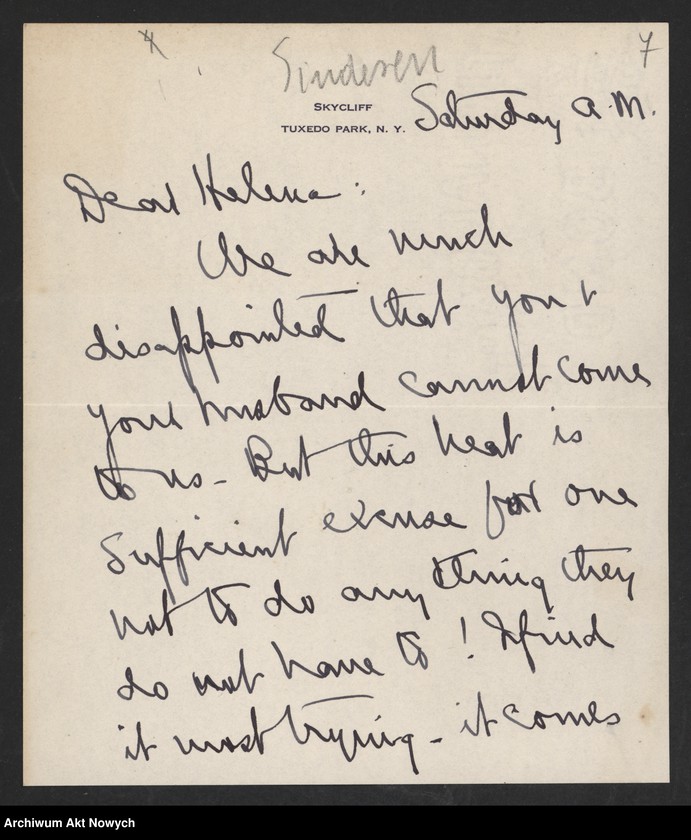 4
7
Sinderen
SKYCLIFF
TUXEDO PARK, N. Y.
Saturday A.M.
Dear Helena:
We are much
disappointed that you &
your husband cannot come
to us - But this heat is
sufficient excuse for one
not to do any thing they
do not have to! I find
it most trying - it comes
Archiwum Akt Nowych